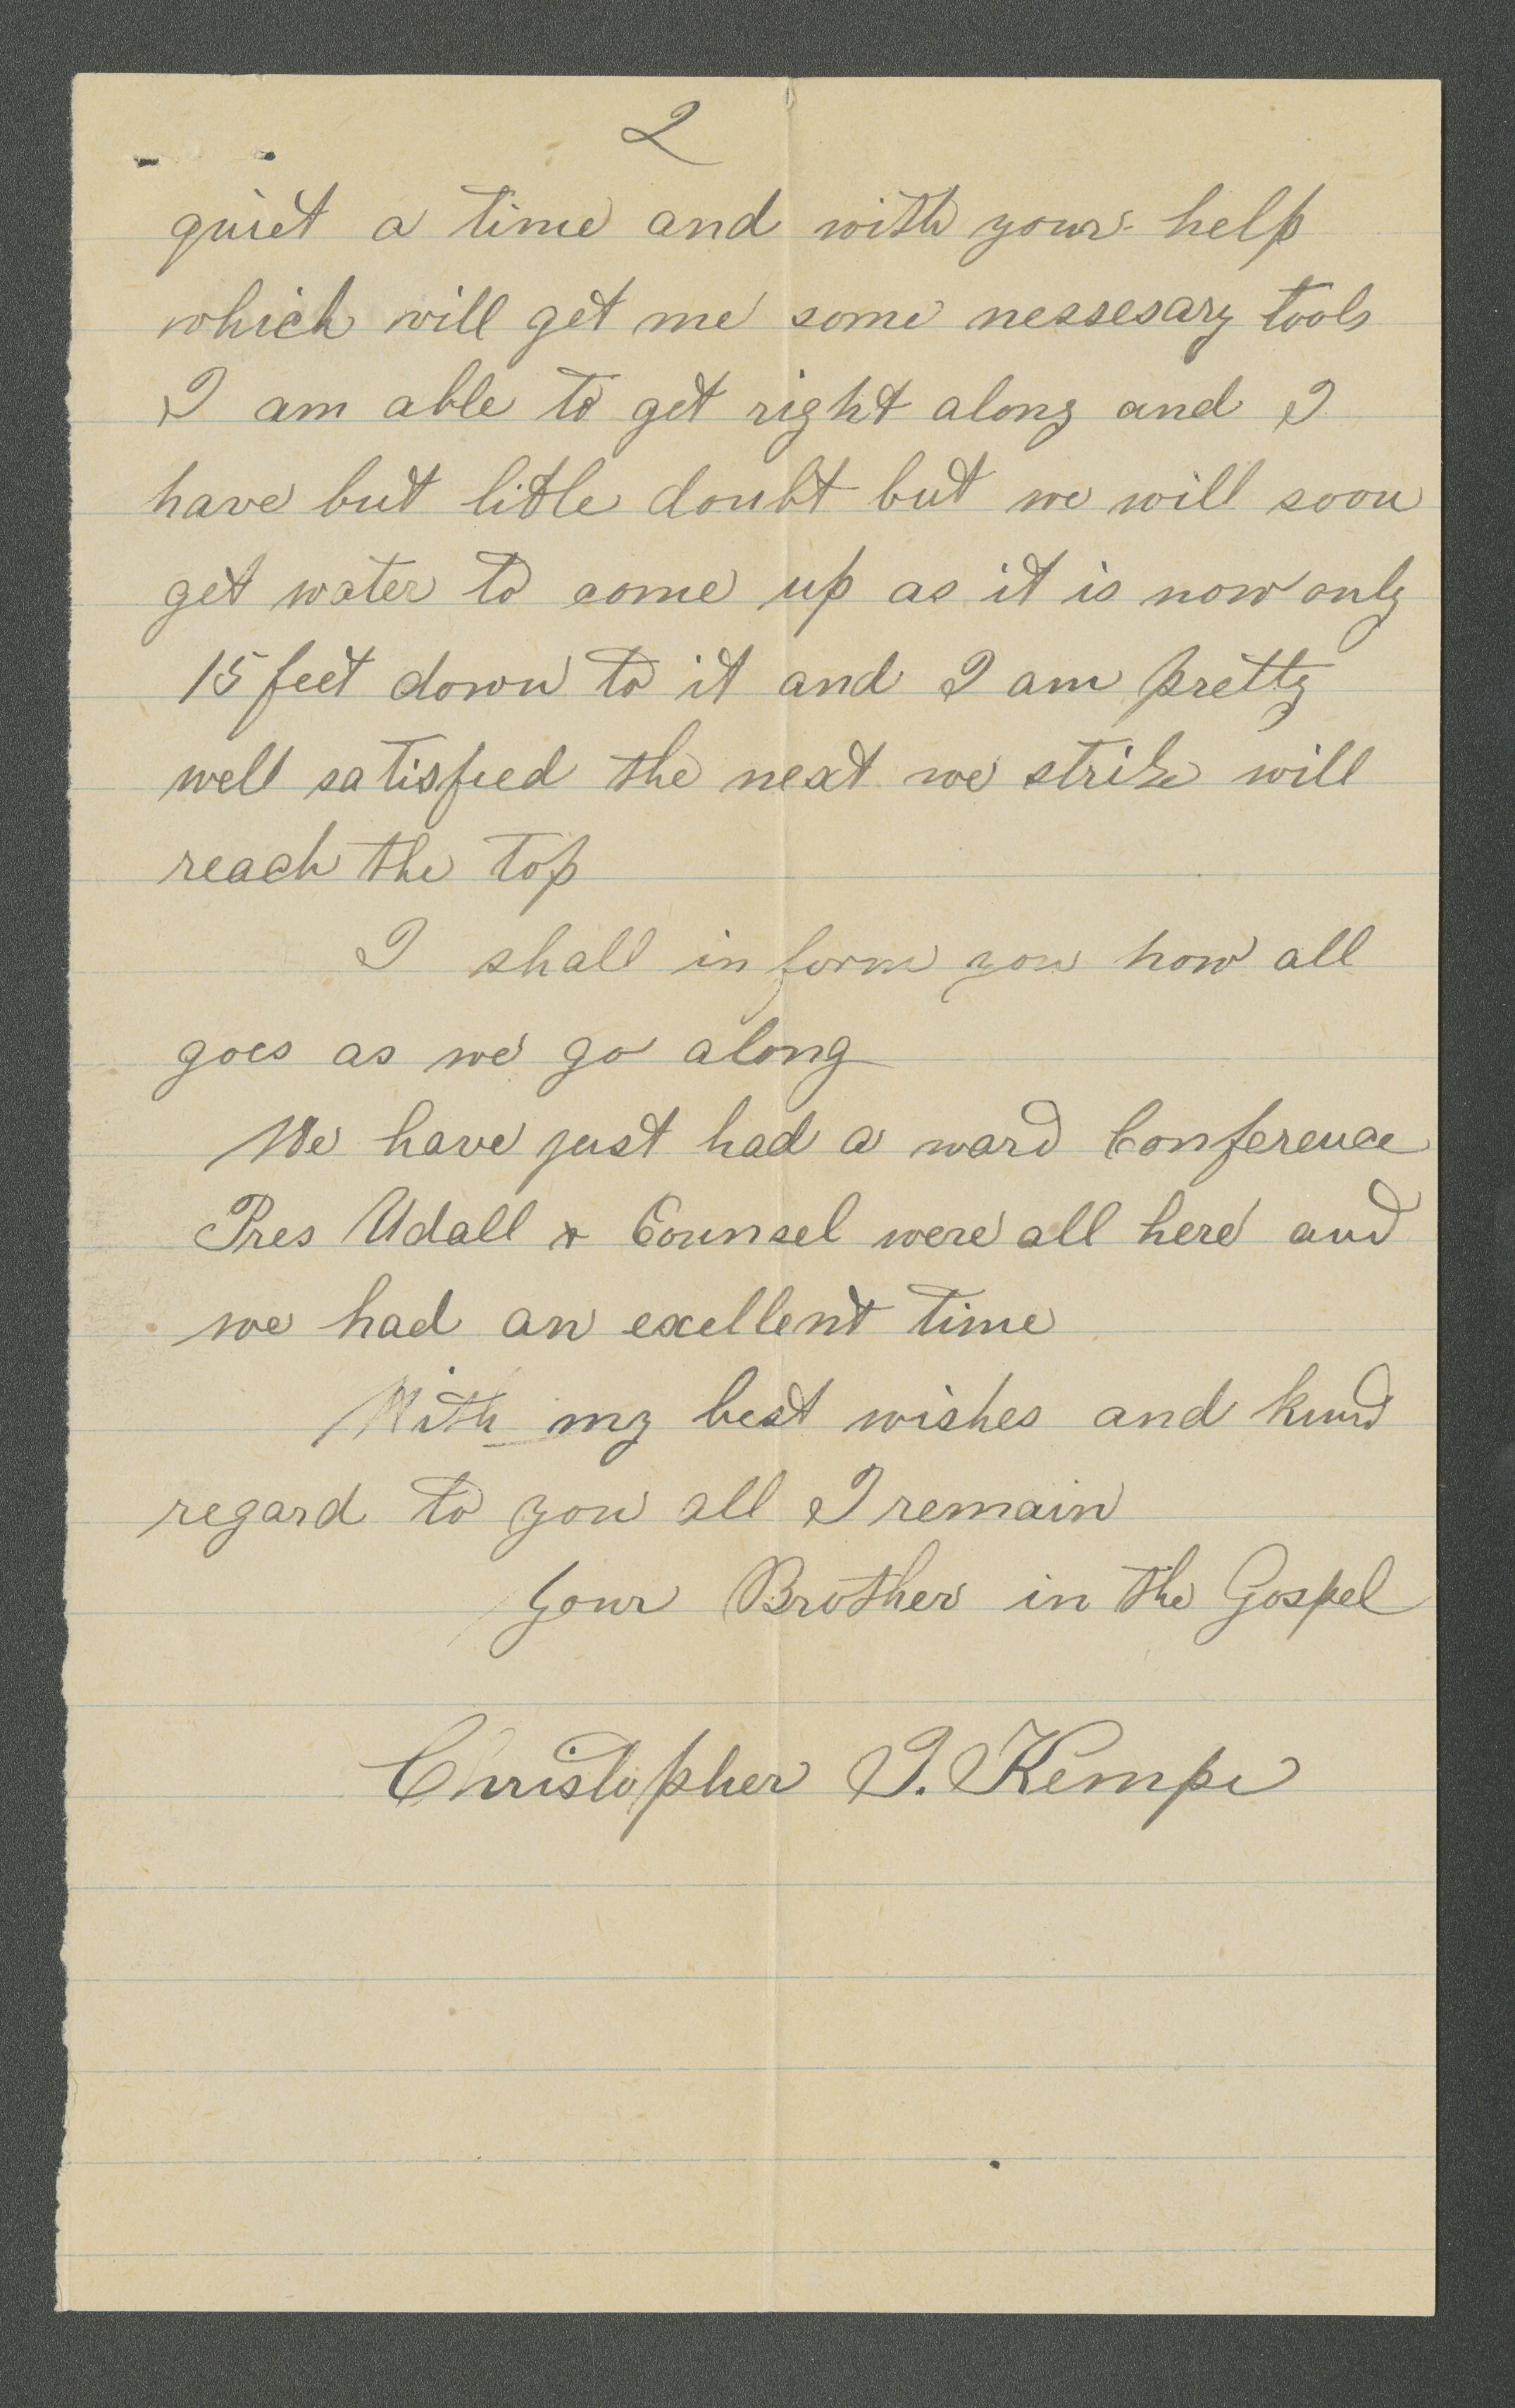 2
quiet a time and with your help
which will get me some nessesary tools
I am able to get right along and I
have but litle doubt but we will soon
get water to come up as it is now only
15 feet down to it and I am pretty
well satisfied the next we strike will
reach the top
I shall inform you how all
goes as we go along
We have just had a ward Conference
Pres Udall & Counsel were all here and
we had an exellent time
With my best wishes and kind
regard to you all I remain
Your Brother in the Gospel
Christopher J. Kempe